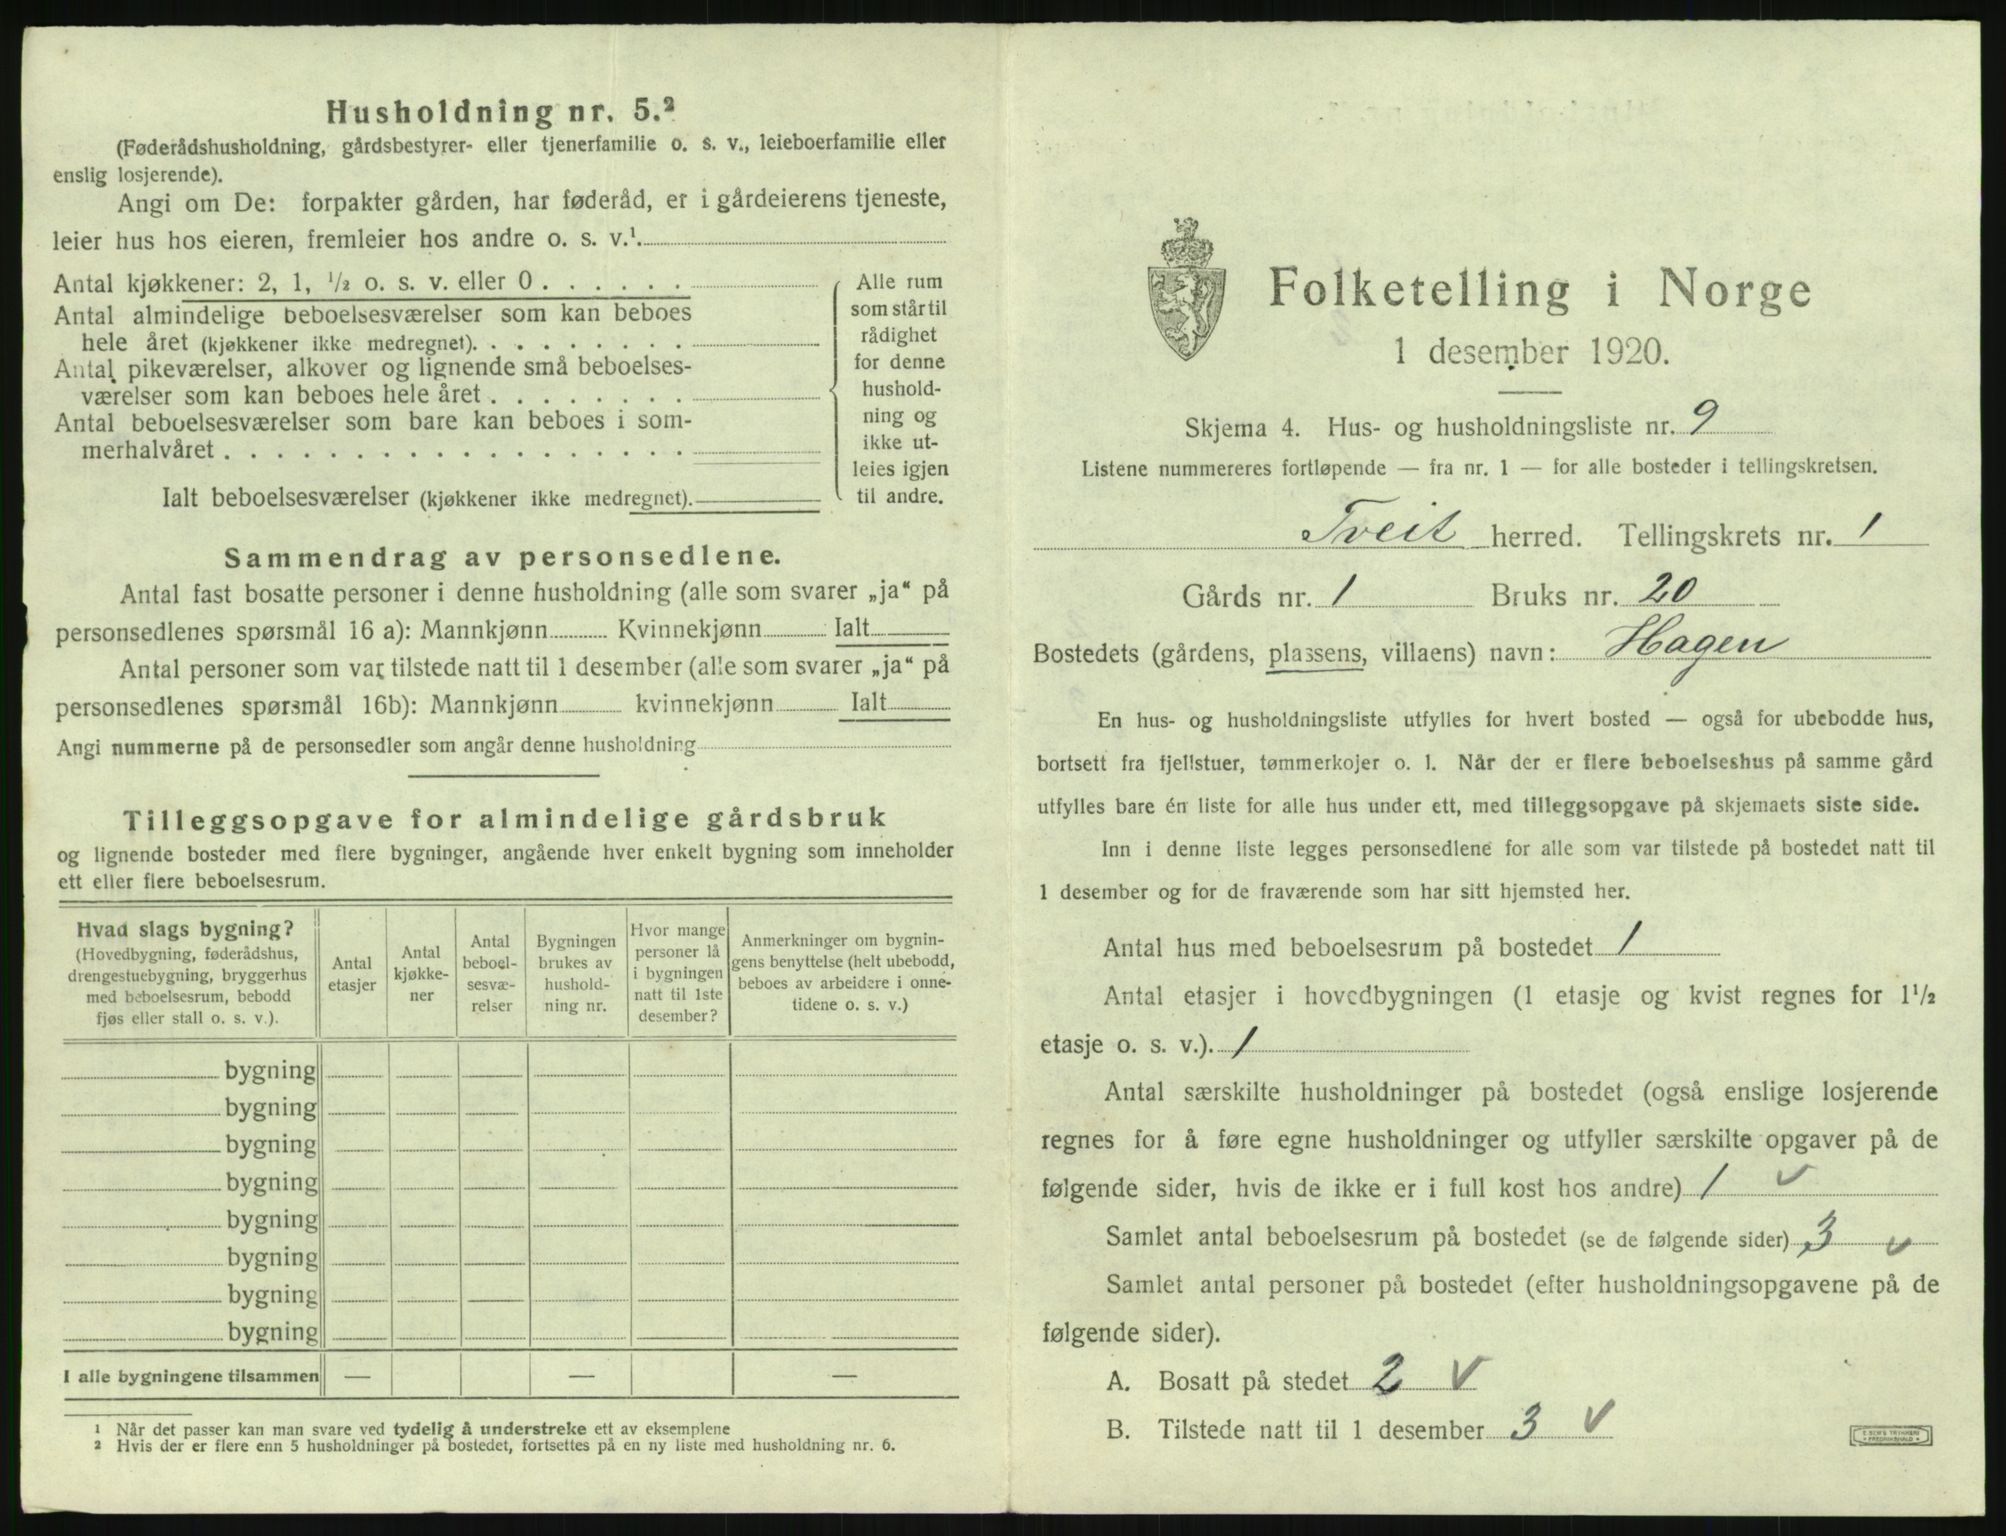 Husholdning nr. 5.²
(Føderådshusholdning, gårdsbestyrer- eller tjenerfamilie o. s. v., leieboerfamilie eller
enslig losjerende).
Angi om De: forpakter gården, har føderåd, er i gårdeierens tjeneste,
leier hus hos eieren, fremleier hos andre o. s. v.¹
Antal kjøkkener: 2, 1, ½ o. s. v. eller 0 . . . . . .
Antal almindelige beboelsesværelser som kan beboes
hele året (kjøkkener ikke medregnet). . . . . . . . .
Antal pikeværelser, alkover og lignende små beboelses-
værelser som kan beboes hele året . . . . . . . .
Antal beboelsesværelser som bare kan beboes i som-
merhalvåret . . . . . . . . . . . . . . . . . .
Ialt beboelsesværelser (kjøkkener ikke medregnet).
Alle rum
som står til
rådighet
for denne
hushold-
ning og
ikke ut-
leies igjen
til andre.
Sammendrag av personsedlene.
Antal fast bosatte personer i denne husholdning (alle som svarer „ja“ på
personsedlenes spørsmål 16 a): Mannkjønn Kvinnekjønn Ialt
Antal personer som var tilstede natt til 1 desember (alle som svarer „ja“ på
personsedlenes spørsmål 16b): Mannkjønn kvinnekjønn Ialt
Angi nummerne på de personsedler som angår denne husholdning
Tilleggsopgave for almindelige gårdsbruk
og lignende bosteder med flere bygninger, angående hver enkelt bygning som inneholder
ett eller flere beboelsesrum.
Hvad slags bygning?
(Hovedbygning, føderådshus,
drengestuebygning, bryggerhus
med beboelsesrum, bebodd
fjøs eller stall o. s. v.).
Antal
etasjer
Antal
kjøkke-
ner
Antal
beboel-
sesvæ-
relser
Bygningen
brukes av
hushold-
ning nr.
Hvor mange
personer lå
i bygningen
natt til 1ste
desember?
Anmerkninger om bygnin-
gens benyttelse (helt ubebodd,
beboes av arbeidere i onne-
tidene o. s. v.)
bygning
bygning
bygning
bygning
bygning
bygning
bygning
bygning
I alle bygningene tilsammen — — —
¹ Når det passer kan man svare ved tydelig å understreke ett av eksemplene
² Hvis der er flere enn 5 husholdninger på bostedet, fortsettes på en ny liste med husholdning nr. 6.
Folketelling i Norge
1 desember 1920.
Skjema 4. Hus- og husholdningsliste nr. 9
Listene nummereres fortløpende — fra nr. 1 — for alle bosteder i tellingskretsen.
Tveit herred. Tellingskrets nr. 1
Gårds nr. 1 Bruks nr. 20
Bostedets (gårdens, plassens, villaens) navn: Hagen
En hus- og husholdningsliste utfylles for hvert bosted — også for ubebodde hus,
bortsett fra fjellstuer, tømmerkojer o. l. Når der er flere beboelseshus på samme gård
utfylles bare én liste for alle hus under ett, med tilleggsopgave på skjemaets siste side.
Inn i denne liste legges personsedlene for alle som var tilstede på bostedet natt til
1 desember og for de fraværende som har sitt hjemsted her.
Antal hus med beboelsesrum på bostedet 1
Antal etasjer i hovedbygningen (1 etasje og kvist regnes for 1½
etasje o. s. v.). 1
Antal særskilte husholdninger på bostedet (også enslige losjerende
regnes for å føre egne husholdninger og utfyller særskilte opgaver på de
følgende sider, hvis de ikke er i full kost hos andre) 1 v
Samlet antal beboelsesrum på bostedet (se de følgende sider) 3 v
Samlet antal personer på bostedet (efter husholdningsopgavene på de
følgende sider).
A. Bosatt på stedet 2 v
B. Tilstede natt til 1 desember 3 v
E. SEM'S TRYKKERI
FREDRIKSHALD